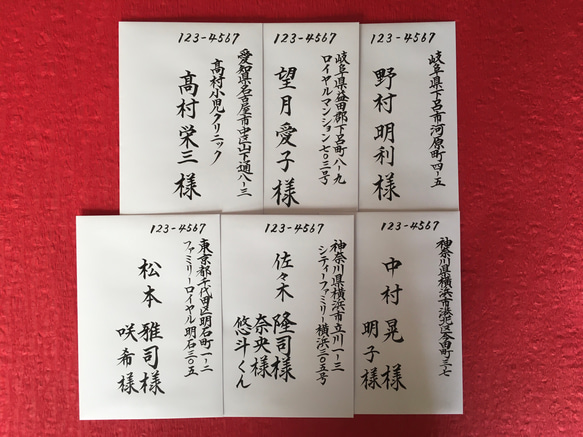 123-4567
岐阜県下呂市河原町四-五
野村明利様
123-4567
岐阜県益田郡下呂町八-九
ロイヤルマンション七〇三号
望月愛子様
123-4567
愛知県名古屋市中区山下通八-三
高村小児クリニック
髙村栄三様
123-4567
神奈川県横浜市港北区今田町三-七
中村晃様
明子様
123-4567
神奈川県横浜市立川一-三
シティーファミリー横浜三〇五号
佐々木隆司様
奈央様
悠斗くん
123-4567
東京都千代田区明石町一-二
ファミリーロイヤル明石三〇五
松本雅司様
咲希様